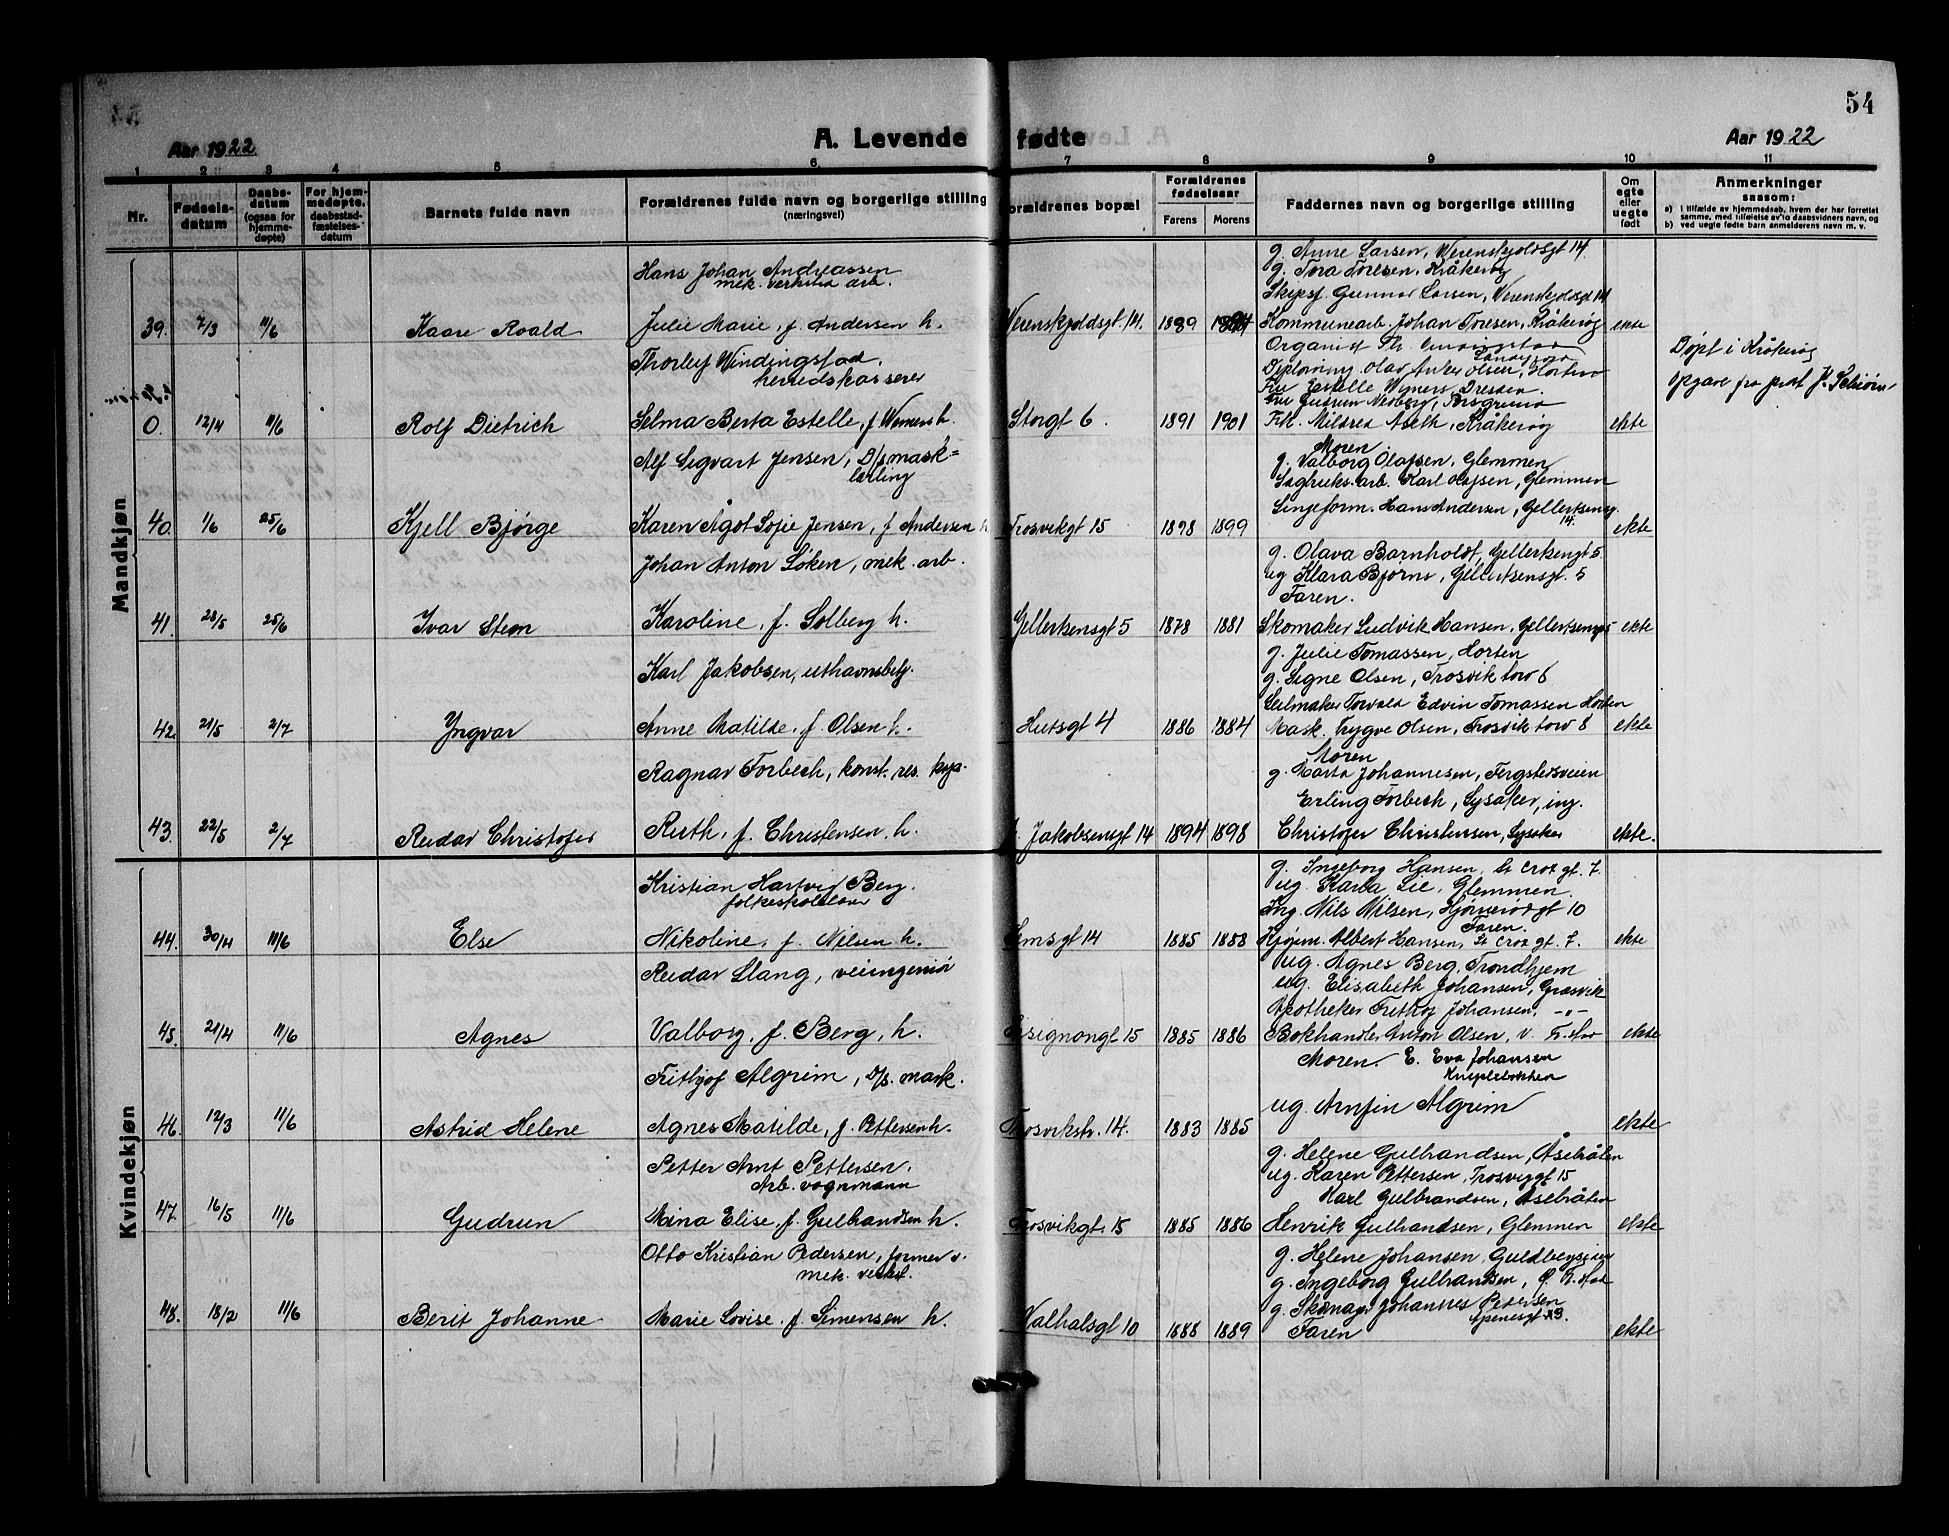 54
Aar 1922
A. Levende fødte
Aar 1922
1 2 3 4 5 6 7 8 9 10 11
Nr.
Fødselsdatum
Daabsdatum (ogsaa for hjemmedøpte)
For hjemmedøpte, daabsstadfæstelsesdatum
Barnets fulde navn
Forældrenes fulde navn og borgerlige stilling (næringsvei)
Forældrenes bopæl
Forældrenes fødselsaar
Farens Morens
Faddernes navn og borgerlige stilling
Om egte eller uegte født
Anmerkninger saasom:
a) i tilfælde av hjemmedaab, hvem der har forrettet samme, med tilføielse av to daabsvidners navn, og
b) ved uegte fødte barn anmelderens navn m. v.
Mandkjøn
Hans Johan Andreassen
mek. verksted arb.
g. Anne Larsen, Werenskjoldsgt 14.
g. Tora Toresen, Kråkerøy
Skipsf. Gunnar Larsen, Werenskjoldsgt 14
39. 7/3 11/6 Kaare Roald Julie Marie, f. Andersen h. Werenskjoldsgt. 14. 1889 Kommunearb. Johan Toresen, Kråkerøy ekte
Thorleif Windingstad,
herredskasserer
Organist Th.
Olav Anker Olsen, Horten
Fru Estelle Wimers, Dresden
Fru Gudrun Nedberg, Porsgrund
Døpt i Kråkerøy
opgave fra prest J. Schiørn
0. 12/4 11/6 Rolf Dietrich Selma Berta Estelle, f. Wemers h. Storgt 6. 1891 1901 Frk. Mildred Aseth, Kråkerøy ekte
Alf Sigvart Jensen, D/s mask=
lærling
Moren
g. Valborg Olafsen, Glemmen
Sagbruks.arb. Karl Olafsen, Glemmen
40. 1/6 25/6 Kjell Bjørge Karen Ågot Sofie Jensen, f Andersen h Trosvikgt 15 1898 1899 Lingeform. Hans Andersen, Gellertsensg. 14. ekte
Johan Anton Løken, mek. arb.
g. Olava Barnholdt, Gellertsengt 5
ug Klara Bjørns, Gellertsensgt. 5
Faren.
41. 28/5 25/6 Ivar Steen Karoline, f. Solberg h. Gellertsensgt 5 1878 1881 Skomaker Ludvik Hansen, Gellertsensg 5 ekte
Karl Jakobsen, uthavnsbetj.
g. Julie Tomassen, Horten
g. Signe Olsen, Trosvik torv 8
Seilmaker Torvald Edvin Tomassen Horten
42. 21/5 2/7 Yngvar Anne Matilde, f. Olsen h. Hutsgt 4 1886 1884 Mask. Trygve Olsen, Trosvik torv 8 ekte
Ragnar Forbech, konst. res. kap.
Moren
g. Marta Johannesen, Fergstersveien
Erling Forbech, Lysaker, ing.
43. 22/5 2/7 Reidar Christofer Ruth, f. Christensen, h. J. Jakobsensgt 14 1894 1898 Christofer Christensen, Lysaker ekte.
Kvindekjøn
Kristian Hartvig Berg.
folkeskolelærer
g. Ingeborg Hansen, St Croz gt. 7
ug. Karla Lie, Glemmen.
Ing. Nils Nilsen, Hjørnerødgt 10
Faren.
44. 30/4 11/6 Else Nikoline, f. Nilsen h. Simsgt 14 1885 1888 Kjøpm. Albert Hansen, St Croz gt. 7. ekte
Reidar Slang, veiingeniør
ug. Agnes Berg, Trondhjem
ug. Elisabeth Johansen, Græsvik
Apotheker Frithof Johansen, -"-
45. 21/4 11/6 Agnes Valborg, f. Berg, h. Cicignongt 15 1885 1886 Bokhandler Anton Olsen, v. Fr.stad ekte
Fritjof Algrim, D/s. mask.
Moren. E. Eva Johansen
ug. Arnfin Algrim
46. 12/3 11/6 Astrid Helene Agnes Matilde, f. Pettersen h. Trosvikstr. 14. 1883 1885 ekte
Petter Arnt Pettersen,
Arb. vognmann
g. Helene Gulbrandsen, Åsebråten
ug. Karen Pettersen, Trosviggt 15
Karl Gulbrandsen, Åsebråten
47. 16/5 11/6 Gudrun Mina Elise, f. Gulbrandsen h. Trosvikgt. 15 1885 1886 Henrik Gulbrandsen, Glemmen ekte
Otto Kristian Pedersen, former v.
mek. verkst.
g. Helene Johansen, Guldbergsieg
g. Ingeborg Gulbrandsen, Ø. Fr.stad
g. Skomag. Johannes Petersen
Apenesgt 43.
48. 18/2 11/6 Berit Johanne Marie Lovise, f. Simensen h. Valhalsgt 10 1888 1889 Faren ekte